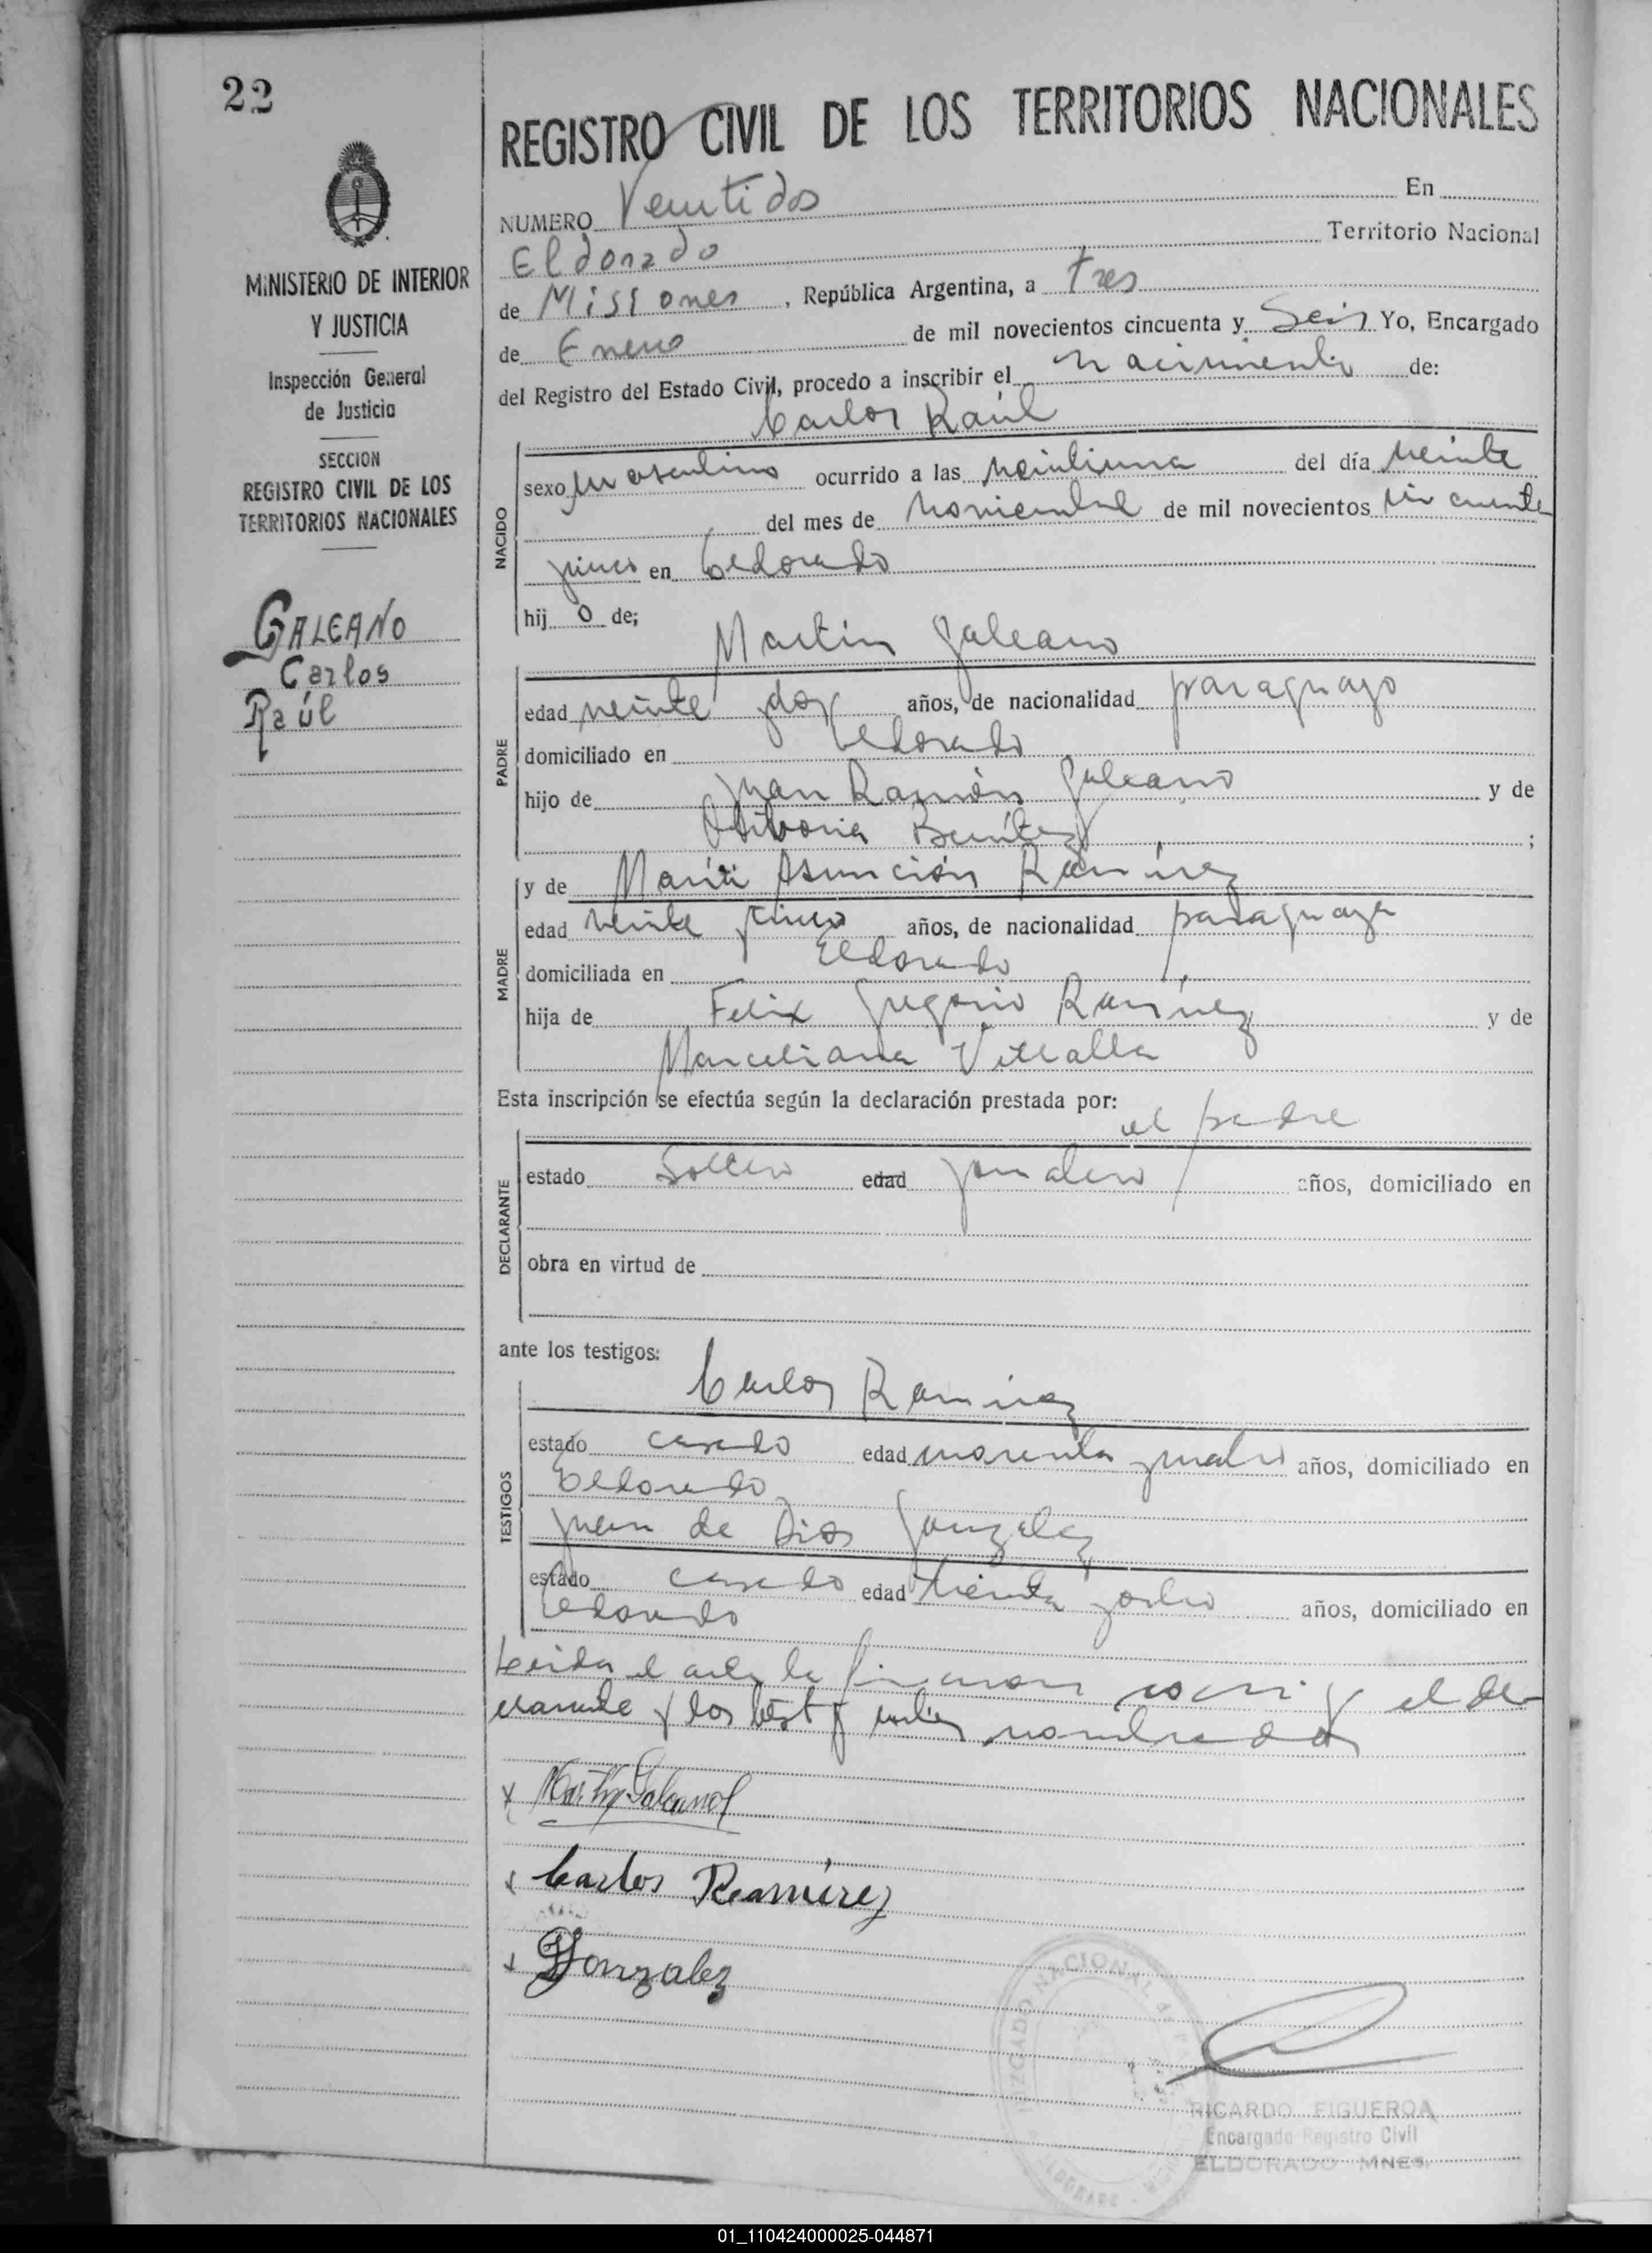 22
MINISTERIO DE INTERIOR
Y JUSTICIA
Inspección General
de Justicia
SECCION
REGISTRO CIVIL DE LOS
TERRITORIOS NACIONALES
GALEANO
Carlos
Raúl
REGISTRO CIVIL DE LOS TERRITORIOS NACIONALES
NUMERO Veintidos En
Eldorado Territorio Nacional
de Misiones, República Argentina, a tres
de Enero de mil novecientos cincuenta y Seis Yo, Encargado
del Registro del Estado Civil, procedo a inscribir el nacimiento de:
Carlos Raúl
NACIDO
sexo masculino ocurrido a las veintiuna del día veinte
del mes de noviembre de mil novecientos cincuenta
y cinco en Eldorado
hij o de;
Martin Galeano
PADRE
edad veinte y dos años, de nacionalidad paraguayo
domiciliado en Eldorado
hijo de Juan Ramón Galeano y de
Benítez;
MADRE
y de María Asunción Ramírez
edad veinte y cinco años, de nacionalidad paraguaya
domiciliada en Eldorado
hija de Felix Gregorio Ramírez y de
Marceliana Villalla
Esta inscripción se efectúa según la declaración prestada por:
el padre
DECLARANTE
estado Soltero edad jornalero años, domiciliado en
obra en virtud de
ante los testigos:
Carlos Ramírez
TESTIGOS
estado casado edad cuarenta y cuatro años, domiciliado en
Eldorado
Juan de Dios González
estado casado edad treinta y ocho años, domiciliado en
Eldorado
Leida el acta la firmaron conmigo el de-
clarante y los testigos nombrados
x Martin Galeano
x Carlos Ramírez
x Gonzalez
JUZGADO NACIONAL DE PAZ
ELDORADO
RICARDO FIGUEROA
Encargado Registro Civil
ELDORADO MNES.
01_110424000025-044871